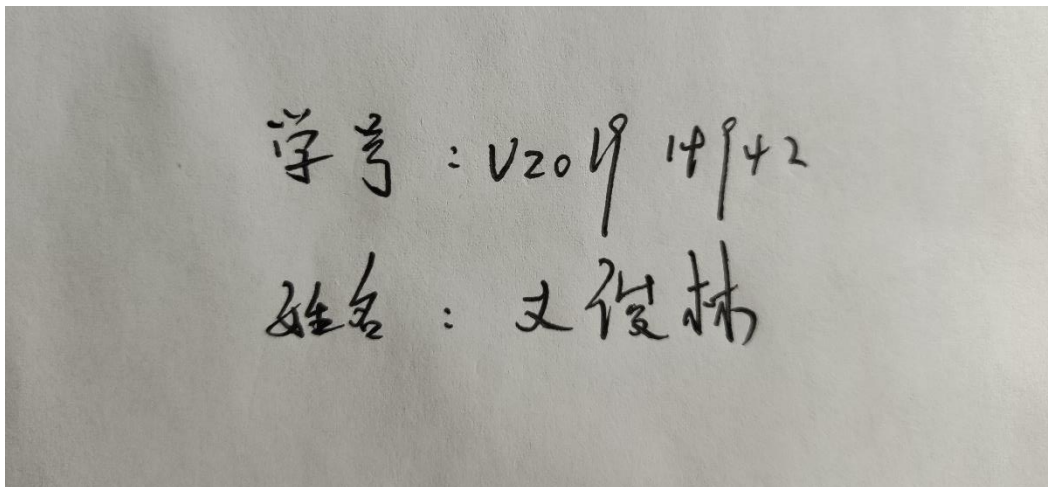 学号：U201914942
姓名：文俊林